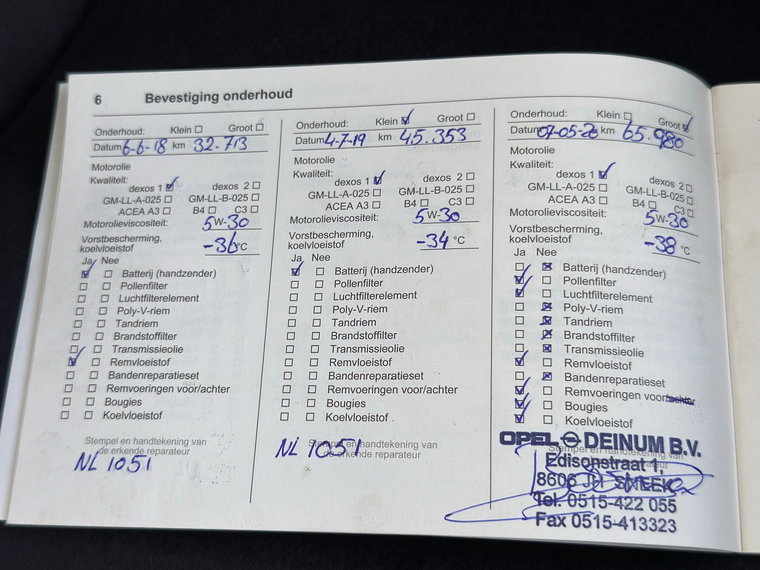 6 Bevestiging onderhoud
Onderhoud: Klein ☐ Groot ☐
Datum 6-6-18 km 32.713
Motorolie
Kwaliteit:
dexos 1 ☑ dexos 2 ☐
GM-LL-A-025 ☐ GM-LL-B-025 ☐
ACEA A3 ☐ B4 ☐ C3 ☐
Motorolieviscositeit: 5W-30
Vorstbescherming,
koelvloeistof -36°C
Ja Nee
☑ ☐ Batterij (handzender)
☐ ☐ Pollenfilter
☐ ☐ Luchtfilterelement
☐ ☐ Poly-V-riem
☐ ☐ Tandriem
☐ ☐ Brandstoffilter
☐ ☐ Transmissieolie
☑ ☐ Remvloeistof
☐ ☐ Bandenreparatieset
☐ ☐ Remvoeringen voor/achter
☐ ☐ Bougies
☐ ☐ Koelvloeistof
Stempel en handtekening van
de erkende reparateur
NL 1051
Onderhoud: Klein ☑ Groot ☐
Datum 4-7-19 km 45.353
Motorolie
Kwaliteit:
dexos 1 ☑ dexos 2 ☐
GM-LL-A-025 ☐ GM-LL-B-025 ☐
ACEA A3 ☐ B4 ☐ C3 ☐
Motorolieviscositeit: 5W-30
Vorstbescherming,
koelvloeistof -34 °C
Ja Nee
☑ ☐ Batterij (handzender)
☐ ☐ Pollenfilter
☐ ☐ Luchtfilterelement
☐ ☐ Poly-V-riem
☐ ☐ Tandriem
☐ ☐ Brandstoffilter
☐ ☐ Transmissieolie
☐ ☐ Remvloeistof
☐ ☐ Bandenreparatieset
☐ ☐ Remvoeringen voor/achter
☐ ☐ Bougies
☐ ☐ Koelvloeistof
Stempel en handtekening van
de erkende reparateur
NL 1051
Onderhoud: Klein ☐ Groot ☑
Datum 07-05-20 km 65.980
Motorolie
Kwaliteit:
dexos 1 ☑ dexos 2 ☐
GM-LL-A-025 ☐ GM-LL-B-025 ☐
ACEA A3 ☐ B4 ☐ C3 ☐
Motorolieviscositeit: 5W-30
Vorstbescherming,
koelvloeistof -38 °C
Ja Nee
☐ ☒ Batterij (handzender)
☑ ☐ Pollenfilter
☑ ☐ Luchtfilterelement
☐ ☒ Poly-V-riem
☐ ☒ Tandriem
☐ ☒ Brandstoffilter
☐ ☒ Transmissieolie
☑ ☐ Remvloeistof
☐ ☒ Bandenreparatieset
☑ ☐ Remvoeringen voor/achter
☑ ☐ Bougies
☑ ☐ Koelvloeistof
OPEL DEINUM B.V.
Edisonstraat 1,
8606 JH SNEEK
Tel. 0515-422 055
Fax 0515-413323